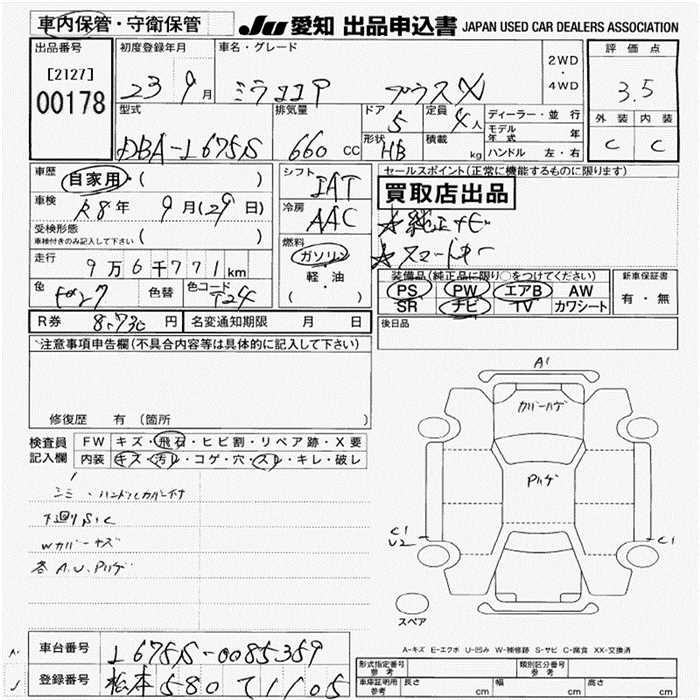 車内保管・守衛保管
JU 愛知 出品申込書 JAPAN USED CAR DEALERS ASSOCIATION
出品番号 初度登録年月 車名・グレード 2WD・4WD 評価点
[2127]
00178
23 9月 ミラココア プラスX 3.5
型式 排気量 ドア 定員 ディーラー・並行 外装 内装
DBA-L675S 660 CC 5 4人 モデル年式 年 C C
形状 HB 積載 kg ハンドル 左・右
車歴 自家用・( ) シフト IAT セールスポイント(正常に機能するものに限ります)
買取店出品
車検 R8年 9月(29日) 冷房 AAC
☆純正ナビ
受検形態 車検付きのみ記入して下さい ( )
☆スマートキー
走行 9万6千771km 燃料 ガソリン・軽・油 ( )
装備品(純正品に限り○をつけてください) 新車保証書
PS PW エアB AW 有・無
SR ナビ TV カワシート
色 色替 色コード T24
後日品
R券 8,730円 名変通知期限 月 日
注意事項申告欄(不具合内容等は具体的に記入して下さい)
修復歴 有(箇所 )
検査員記入欄 FW キズ・飛石・ヒビ割・リペア跡・X要
内装 キズ・汚レ・コゲ・穴・スレ・キレ・破レ
シミ・ハンドルカバー付
下廻りS,C
Wカバーキズ
各A.U.Pハゲ
A1
カバーハゲ
Pハゲ
C1
U2
C1
スペア
A-キズ E-エクボ U-凹み W-補修跡 S-サビ C-腐食 XX-交換済
車台番号 L675S-0085359
登録番号 松本580
形式指定番号 参考 類別区分番号 参考
車庫証明用 参考 長さ cm 幅 cm 高さ cm